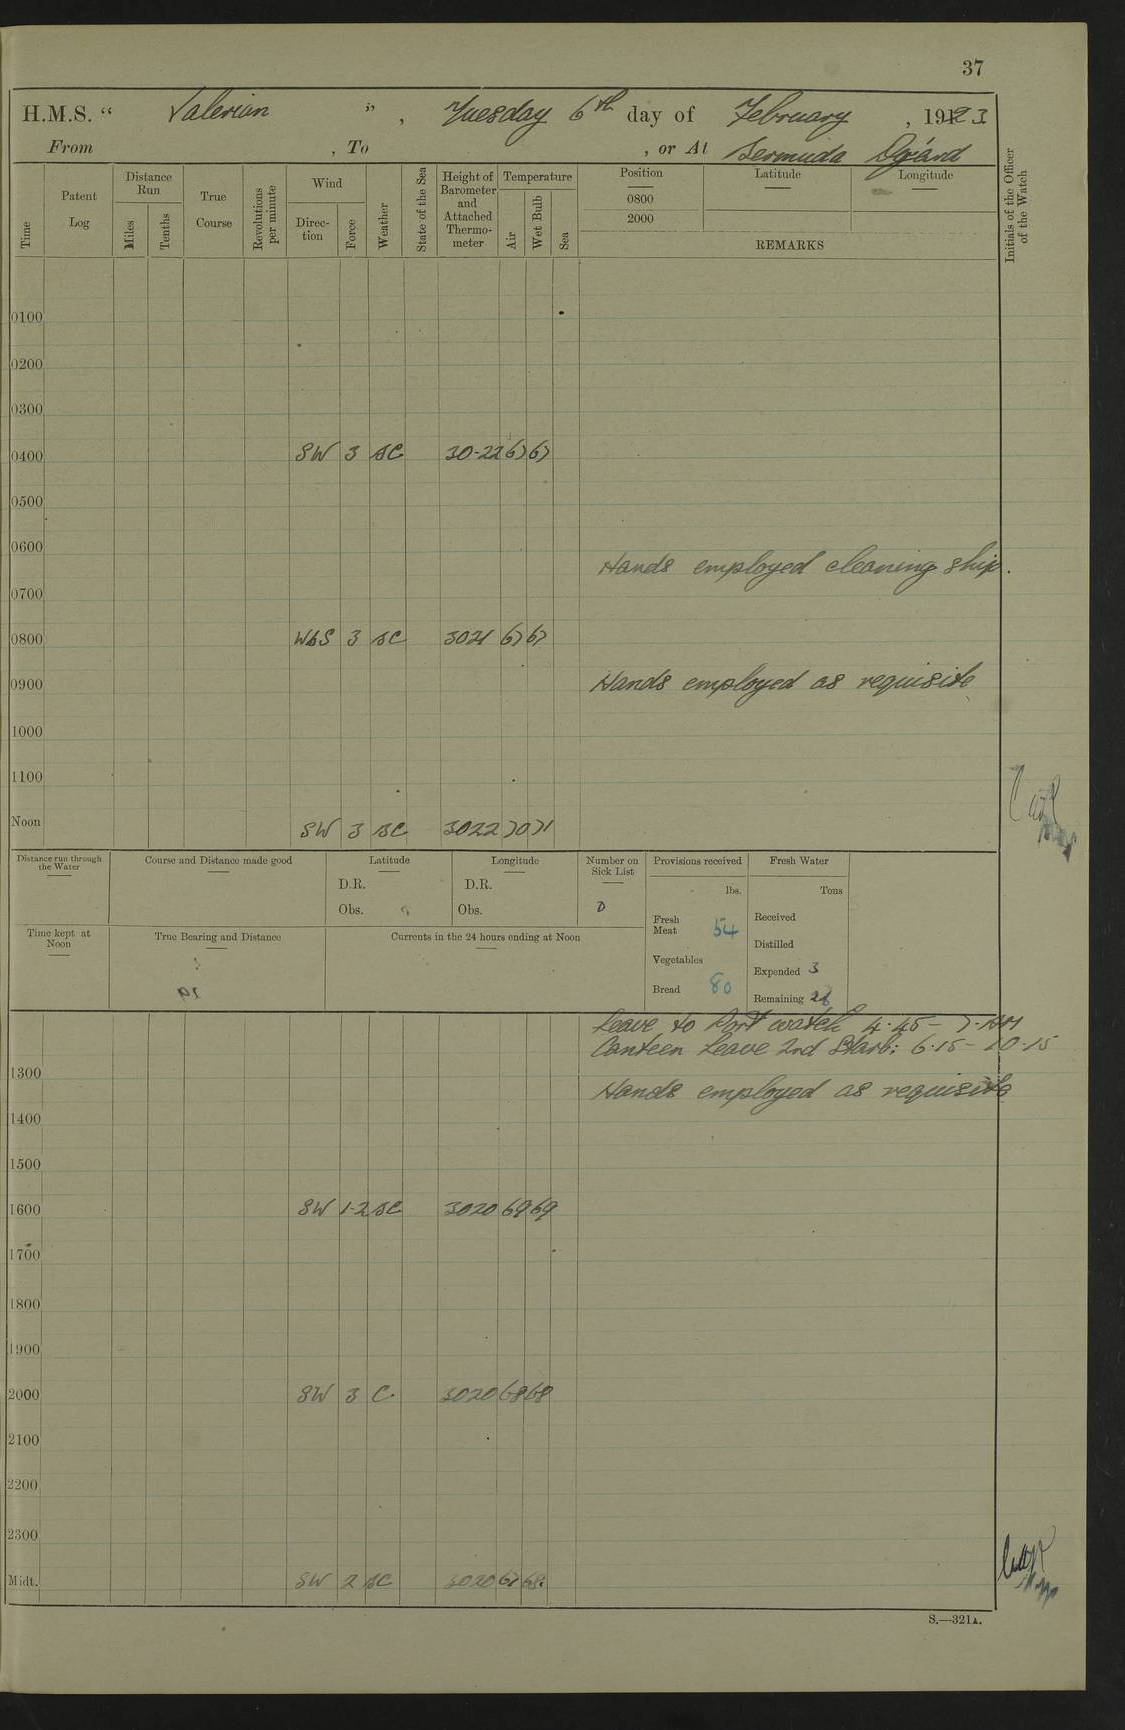 37
H.M.S. “ Valerian ” , Tuesday 6th day of February , 1923
From , To , or At Bermuda D'yard
Time
Patent Log
Distance Run
Miles
Tenths
True Course
Revolutions per minute
Wind
Direc-tion
Force
Weather
State of the Sea
Height of Barometer and Attached Thermo-meter
Temperature
Air
Wet Bulb
Sea
Position
0800
2000
Latitude
Longitude
REMARKS
Initials of the Officer of the Watch
0100
0200
0300
0400 SW 3 BC 30-22 67 67
0500
0600
Hands employed cleaning ship.
0700
0800 WbS 3 BC 3021 67 67
0900 Hands employed as requisite
1000
1100
Noon SW 3 BC 3022 70 71
Distance run through the Water
Course and Distance made good
Latitude
D.R.
Obs.
Longitude
D.R.
Obs.
Number on Sick List
0
Provisions received
lbs.
Fresh Meat 54
Vegetables
Bread 80
Fresh Water
Tons
Received
Distilled
Expended 3
Remaining 26
Time kept at Noon
True Bearing and Distance
Currents in the 24 hours ending at Noon
Leave to Port watch 4.45 - 7.AM
Canteen Leave 2nd Starb: 6.15 - 10.15
1300 Hands employed as requisite
1400
1500
1600 SW 1-2 BC 3020 69 69
1700
1800
1900
2000 SW 3 C. 3020 68 68
2100
2200
2300
Midt. SW 2 BC 3020 67 68
S.—321A.